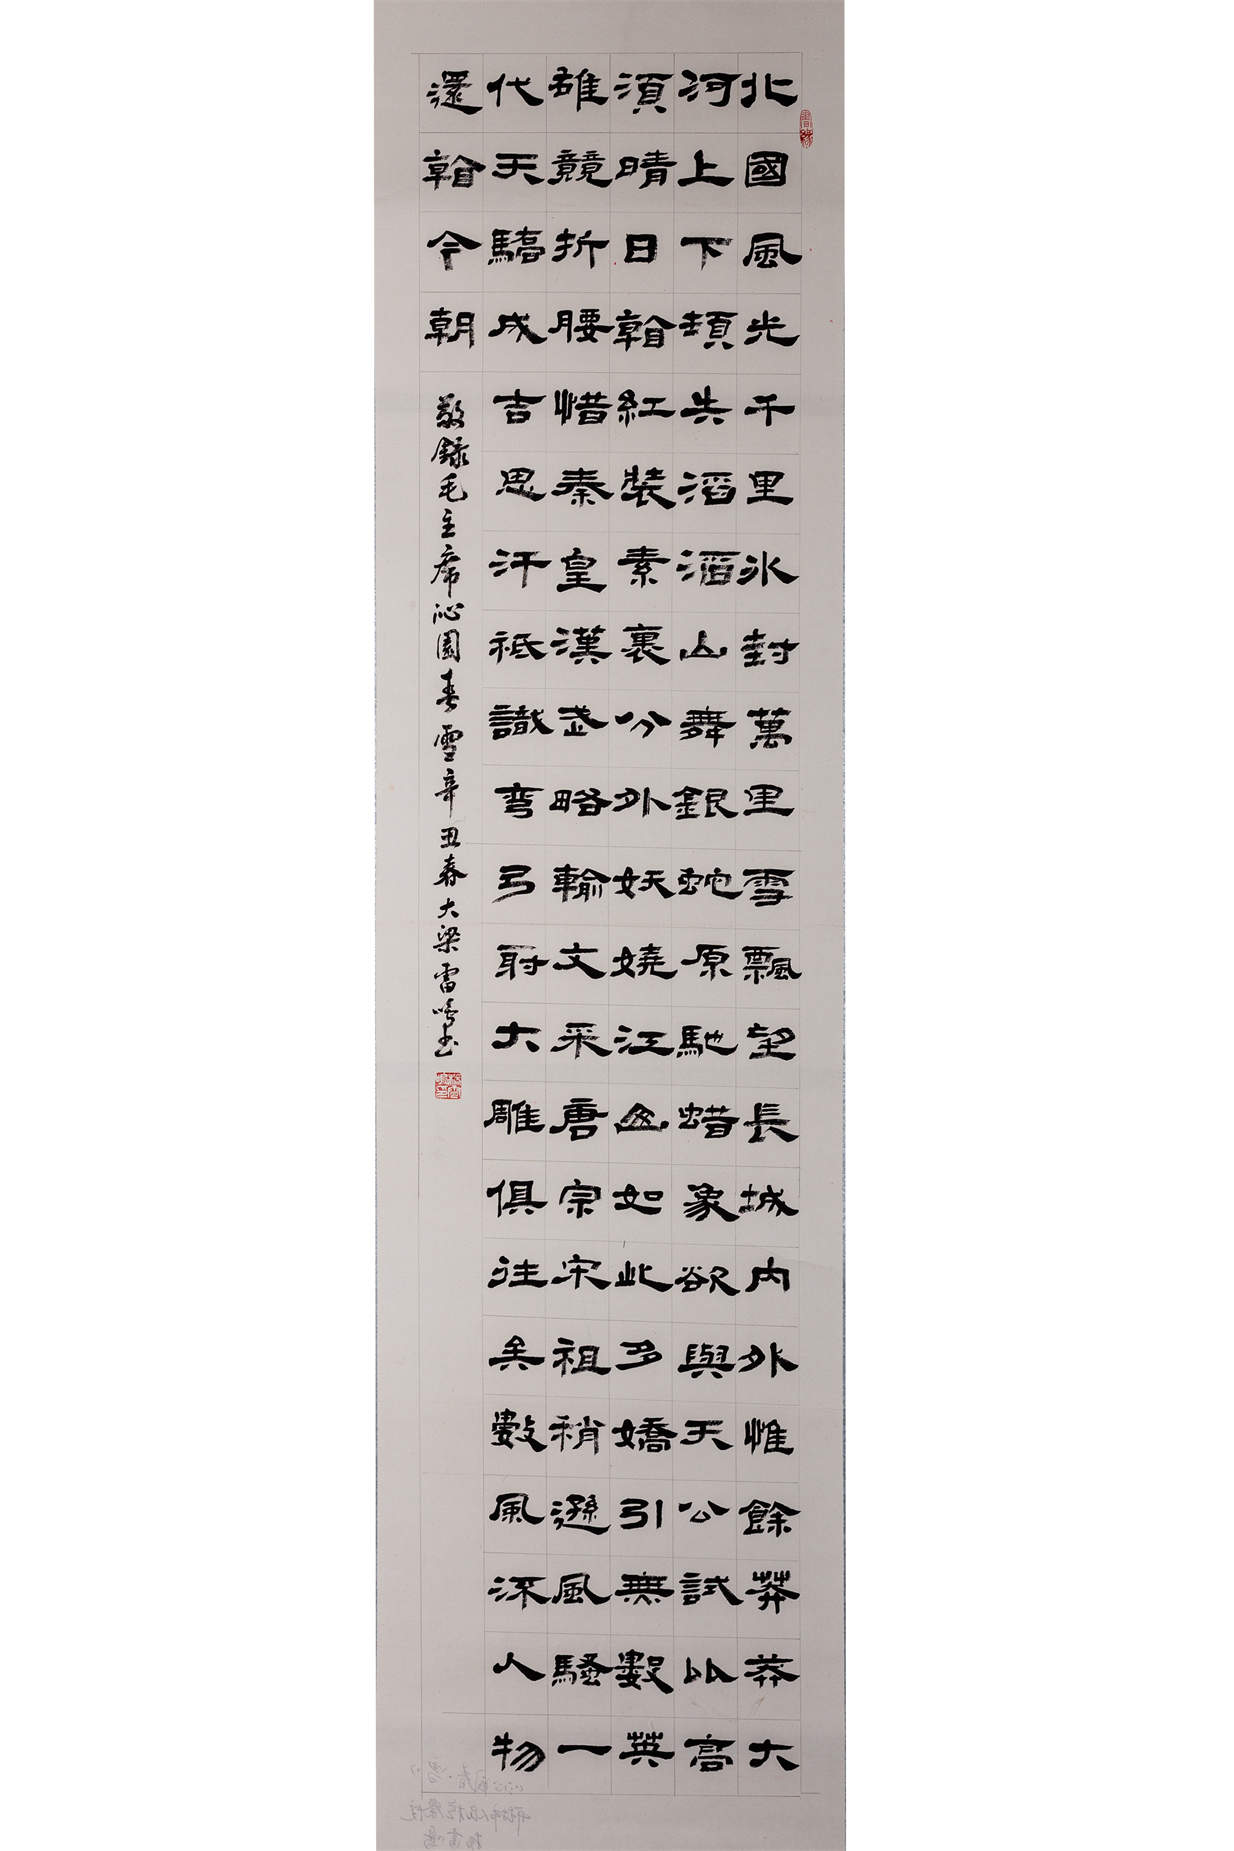 北國風光千里冰封萬里雪飄望長城内外惟餘莽莽大
河上下頓失滔滔山舞銀蛇原馳蜡象欲與天公試比高
須晴日看紅裝素裹分外妖嬈江山如此多嬌引無數英
雄競折腰惜秦皇漢武略輸文采唐宗宋祖稍遜風騷一
代天驕成吉思汗祇識弯弓射大雕俱往矣數風流人物
還看今朝
敬錄毛主席沁園春雪辛丑春大梁雷鳴书